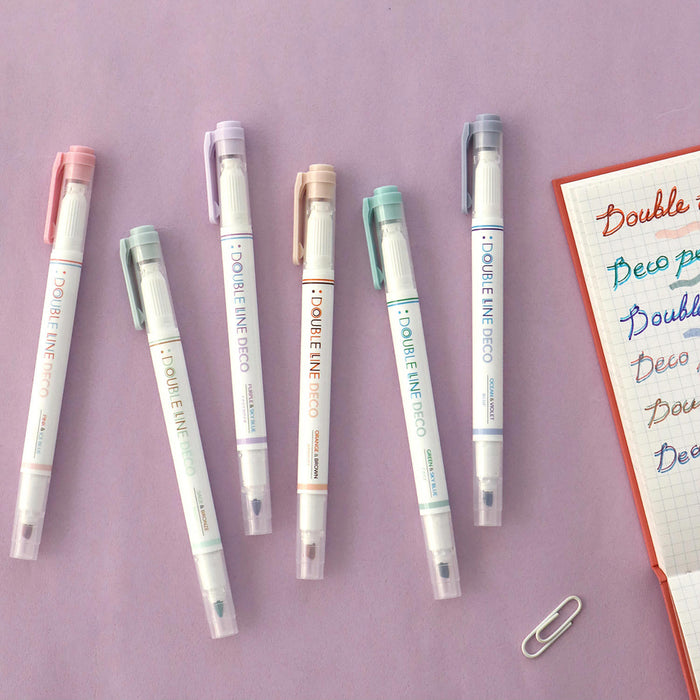 :DOUBLE LINE DECO
PINK & SKY BLUE
:DOUBLE LINE DECO
:DOUBLE LINE DECO
PURPLE & SKY BLUE
:DOUBLE LINE DECO
ORANGE & BROWN
:DOUBLE LINE DECO
GREEN & SKY BLUE
:DOUBLE LINE DECO
OCEAN & VIOLET
Double
Deco pe
Double
Deco
Dou
Deco